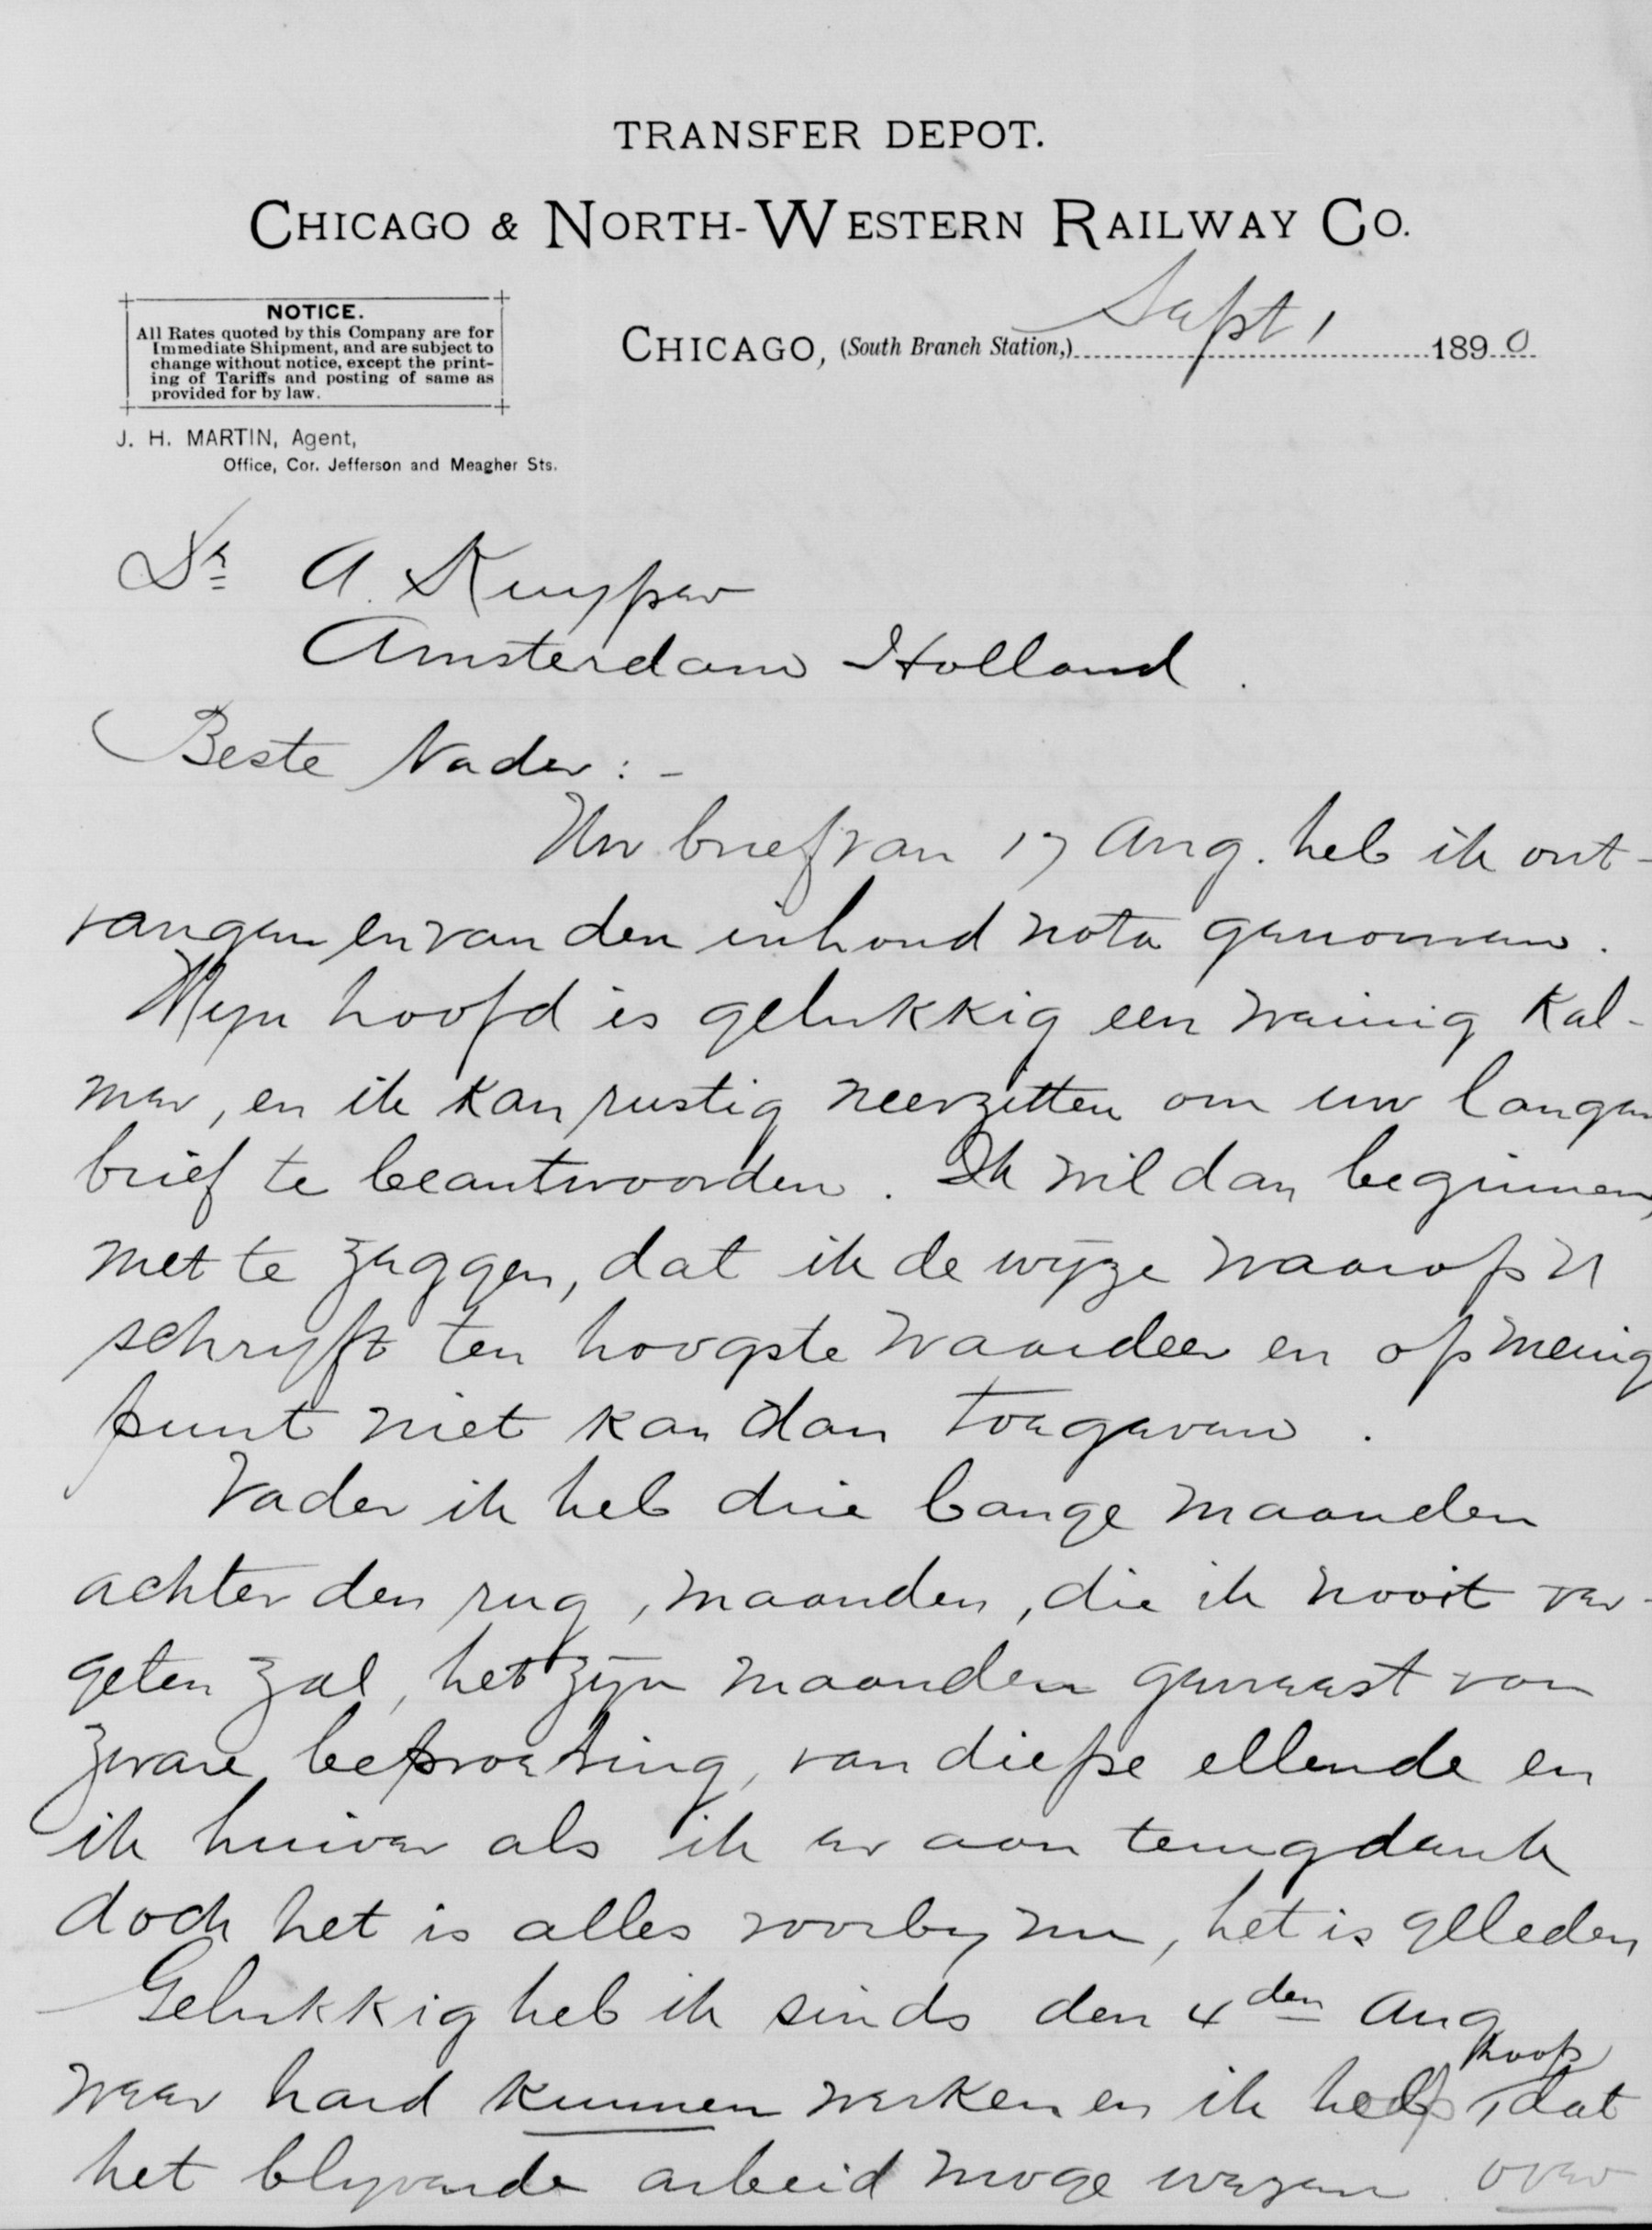 TRANSFER DEPOT.
CHICAGO & NORTH-WESTERN RAILWAY CO.
NOTICE.
All Rates quoted by this Company are for
Immediate Shipment, and are subject to
change without notice, except the print-
ing of Tariffs and posting of same as
provided for by law.
CHICAGO, (South Branch Station,) Sept 1 1890
J. H. MARTIN, Agent,
Office, Cor. Jefferson and Meagher Sts.
Dr A. Kuyper
Amsterdam Holland.
Beste Vader: -
Uw brief van 17 Aug. heb ik ont-
vangen en van den inhoud nota genomen.
Myn hoofd is gelukkig een weinig kal-
mer, en ik kan rustig neerzitten om uw langen
brief te beantwoorden. Ik wil dan beginnen,
met te zeggen, dat ik de wijze waarop U
schryft ten hoogste waardeer en op menig
punt niet kan dan toegeven.
Vader ik heb drie bange maanden
achter den rug, maanden, die ik nooit ver-
geten zal, het zijn maanden geweest van
zware beproeving, van diepe ellende en
ik huiver als ik er aan terugdenk
doch het is alles voorby nu, het is geleden
Gelukkig heb ik sinds den 4den Aug
weer hard kunnen werken en ik hoop dat
het blyvende arbeid moge wezen. over